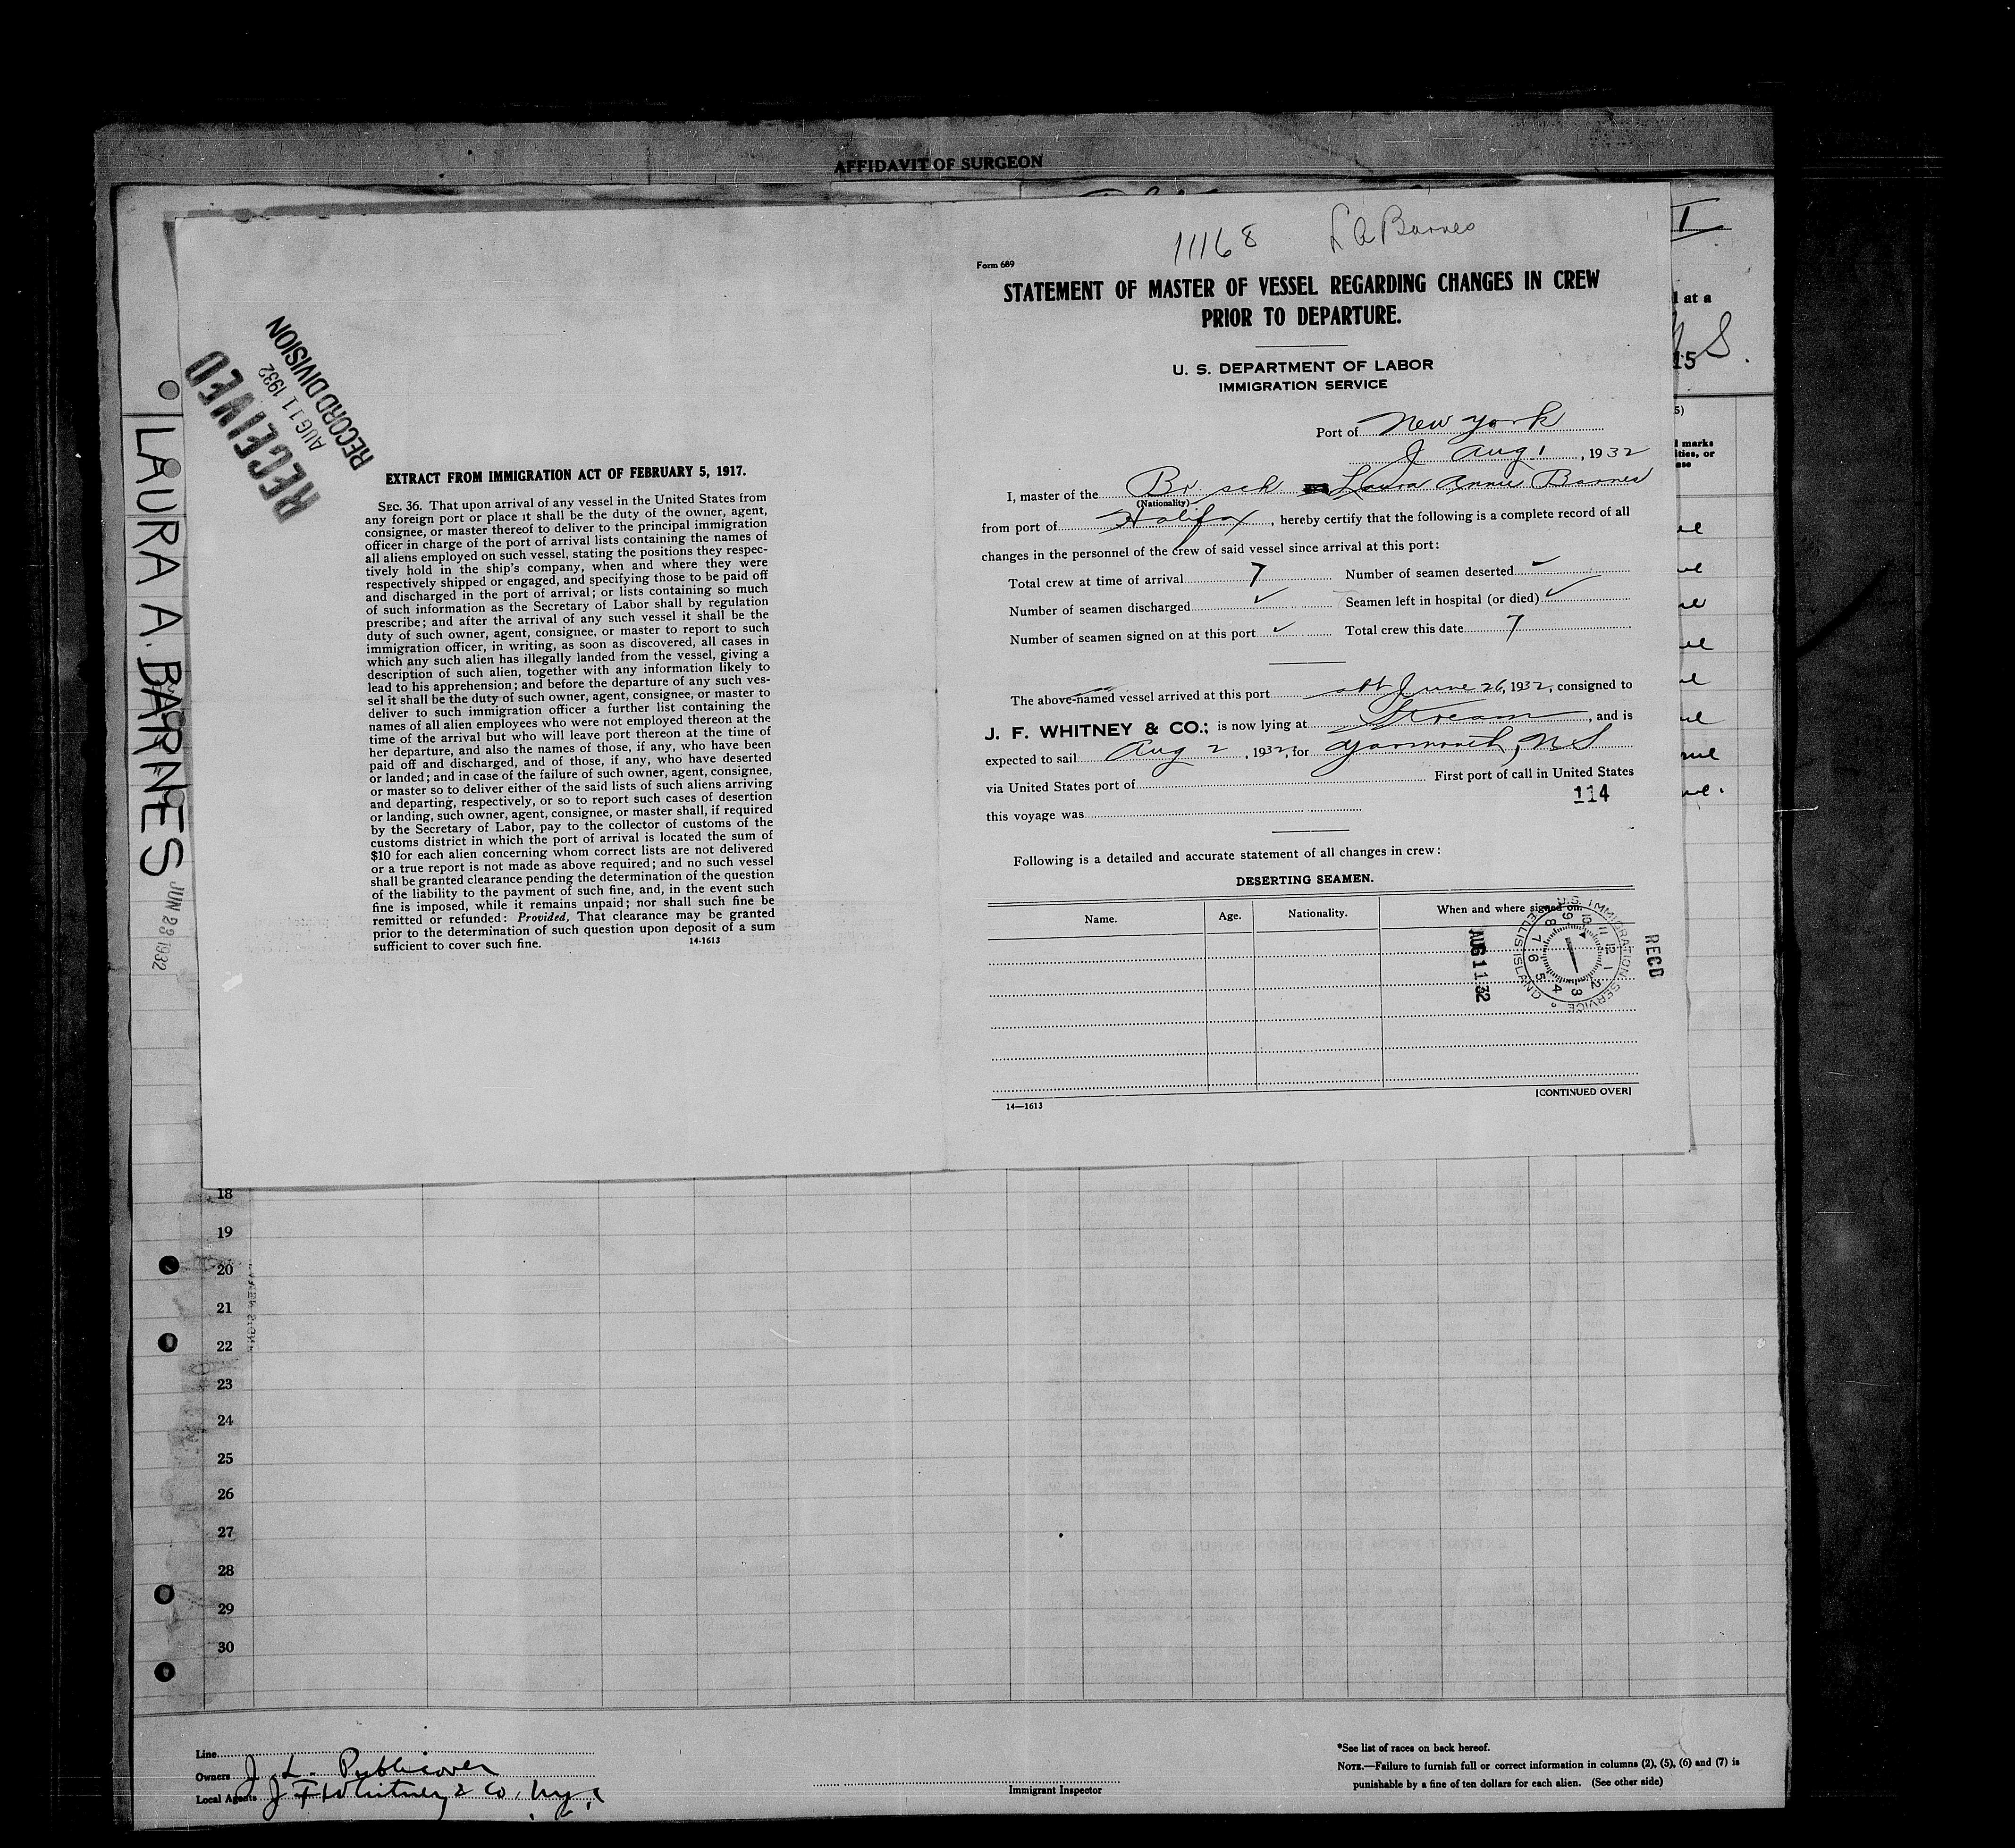 AFFIDAVIT OF SURGEON
I
l at a
S.
15
5)
l marks
ities, or
ase
LAURA A. BARNES
JUN 28 1932
RECEIVED
AUG 11 1932
RECORD DIVISION
EXTRACT FROM IMMIGRATION ACT OF FEBRUARY 5, 1917.
SEC. 36. That upon arrival of any vessel in the United States from
any foreign port or place it shall be the duty of the owner, agent,
consignee, or master thereof to deliver to the principal immigration
officer in charge of the port of arrival lists containing the names of
all aliens employed on such vessel, stating the positions they respec-
tively hold in the ship's company, when and where they were
respectively shipped or engaged, and specifying those to be paid off
and discharged in the port of arrival; or lists containing so much
of such information as the Secretary of Labor shall by regulation
prescribe; and after the arrival of any such vessel it shall be the
duty of such owner, agent, consignee, or master to report to such
immigration officer, in writing, as soon as discovered, all cases in
which any such alien has illegally landed from the vessel, giving a
description of such alien, together with any information likely to
lead to his apprehension; and before the departure of any such ves-
sel it shall be the duty of such owner, agent, consignee, or master to
deliver to such immigration officer a further list containing the
names of all alien employees who were not employed thereon at the
time of the arrival but who will leave port thereon at the time of
her departure, and also the names of those, if any, who have been
paid off and discharged, and of those, if any, who have deserted
or landed; and in case of the failure of such owner, agent, consignee,
or master so to deliver either of the said lists of such aliens arriving
and departing, respectively, or so to report such cases of desertion
or landing, such owner, agent, consignee, or master shall, if required
by the Secretary of Labor, pay to the collector of customs of the
customs district in which the port of arrival is located the sum of
$10 for each alien concerning whom correct lists are not delivered
or a true report is not made as above required; and no such vessel
shall be granted clearance pending the determination of the question
of the liability to the payment of such fine, and, in the event such
fine is imposed, while it remains unpaid; nor shall such fine be
remitted or refunded: Provided, That clearance may be granted
prior to the determination of such question upon deposit of a sum
sufficient to cover such fine. 14-1613
11168 L A Barnes
Form 689
STATEMENT OF MASTER OF VESSEL REGARDING CHANGES IN CREW
PRIOR TO DEPARTURE.
U. S. DEPARTMENT OF LABOR
IMMIGRATION SERVICE
Port of New York
Aug 1, 1932
I, master of the Br sch Laura Annie Barnes
(Nationality)
from port of Halifax, hereby certify that the following is a complete record of all
changes in the personnel of the crew of said vessel since arrival at this port:
Total crew at time of arrival 7 Number of seamen deserted
Number of seamen discharged ✓ Seamen left in hospital (or died) ✓
Number of seamen signed on at this port ✓ Total crew this date 7
The above-named vessel arrived at this port June 26, 1932, consigned to
J. F. WHITNEY & CO.; is now lying at Stream, and is
expected to sail Aug 2, 1932, for Yarmouth, NS
via United States port of First port of call in United States
this voyage was 114
Following is a detailed and accurate statement of all changes in crew:
DESERTING SEAMEN.
Name. Age. Nationality. When and where signed on.
U.S. IMMIGRATION SERVICE
ELLIS ISLAND
1 2 3 4 5 6 7 8 9 10 11 12
AUG 11 32
RECD
14—1613
[CONTINUED OVER]
18
19
20
21
22
23
24
25
26
27
28
29
30
Line
Owners J. L. Publicover
Local Agents J F Whitney & Co, N.Y.C
Immigrant Inspector
*See list of races on back hereof.
NOTE.—Failure to furnish full or correct information in columns (2), (5), (6) and (7) is
punishable by a fine of ten dollars for each alien. (See other side)